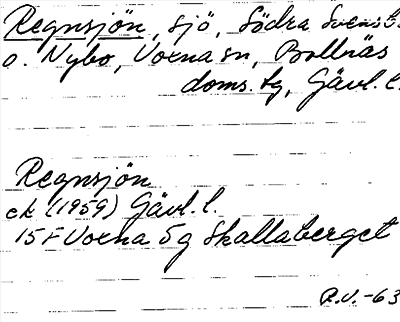 Regnsjön, sjö, Södra Svenst.
o. Nybo, Voxna sn, Bollnäs
doms. tg, Gävl. l.
Regnsjön
ek (1959) Gävl. l.
15F Voxna 5g Skallaberget
R.V.-63